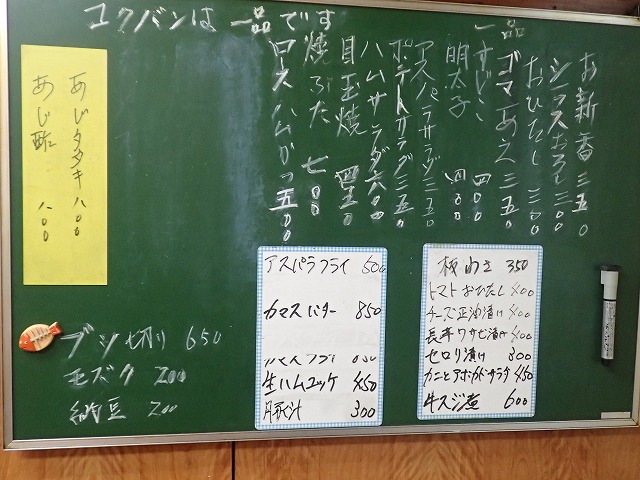 コクバンは一品です
一品
お新香 三五〇
シラスおろし 三〇〇
おひたし 三〇〇
ゴマあえ 三五〇
すじこ 四〇〇
明太子 四〇〇
アスパラサラダ 三五〇
ポテトサラダ 三五〇
ハムサラダ 六〇〇
目玉焼 四五〇
焼ぶた 七〇〇
ロースハムかつ 五〇〇
あじタタキ 八〇〇
あじ酢 八〇〇
板わさ 350
トマトおひたし 400
チーズ正油漬け 400
長芋ワサビ漬け 400
セロリ漬け 300
カニとアボカドサラダ 450
牛スジ煮 600
アスパラフライ 600
カマスバター 850
生ハムユッケ 450
豚汁 300
ブシ切り 650
モズク 200
納豆 200